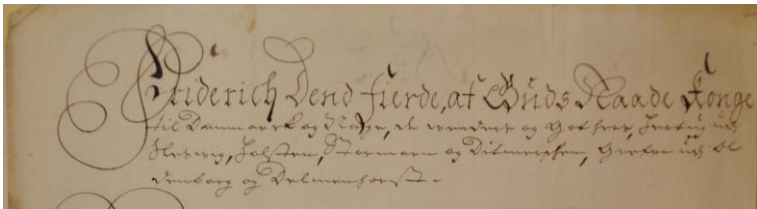 Friderich Dend fierde, af Guds Naade Konge
til Danmarck og Norge, de Wenders og Gothers, Hertug udj
Slesvig, Holsten, Stormarn og Ditmerschen, Grefve udj Ol
denborg og Delmenhorst.